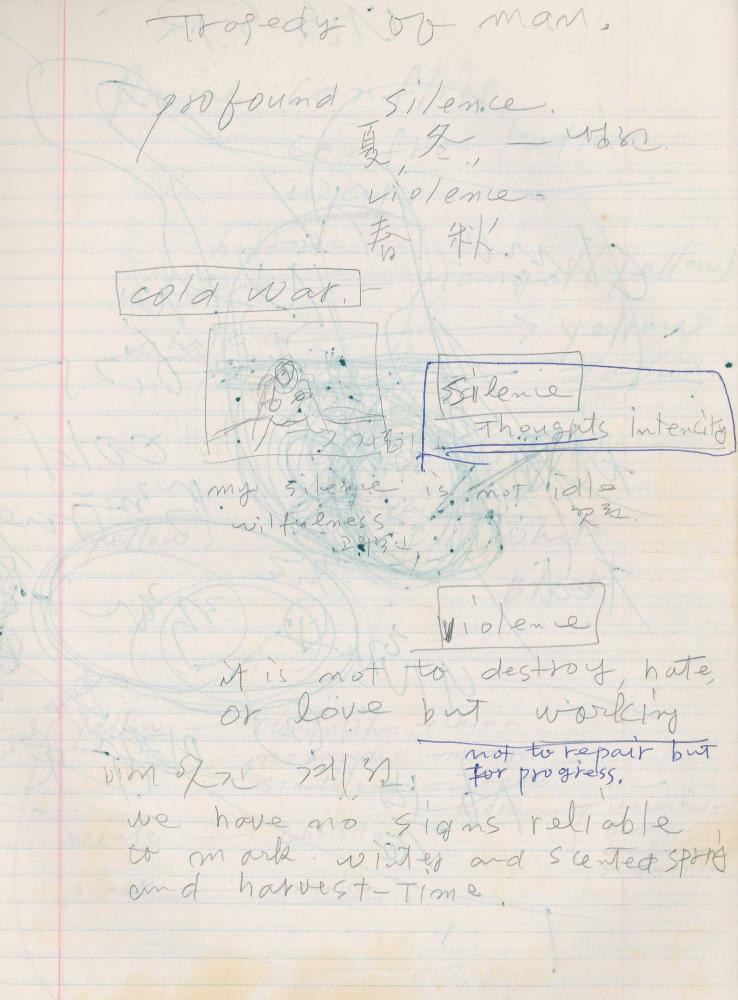 Tragedy of man.
profound silence.
夏, 冬, —
violence
春 秋.
cold war.
Silence
Thoughts intencity
my silence is not idle
wilfulness
violence
it is not to destroy, hate,
or love but working
not to repair but
for progress.
we have no signs reliable
to mark winter and scented spring
and harvest-Time.